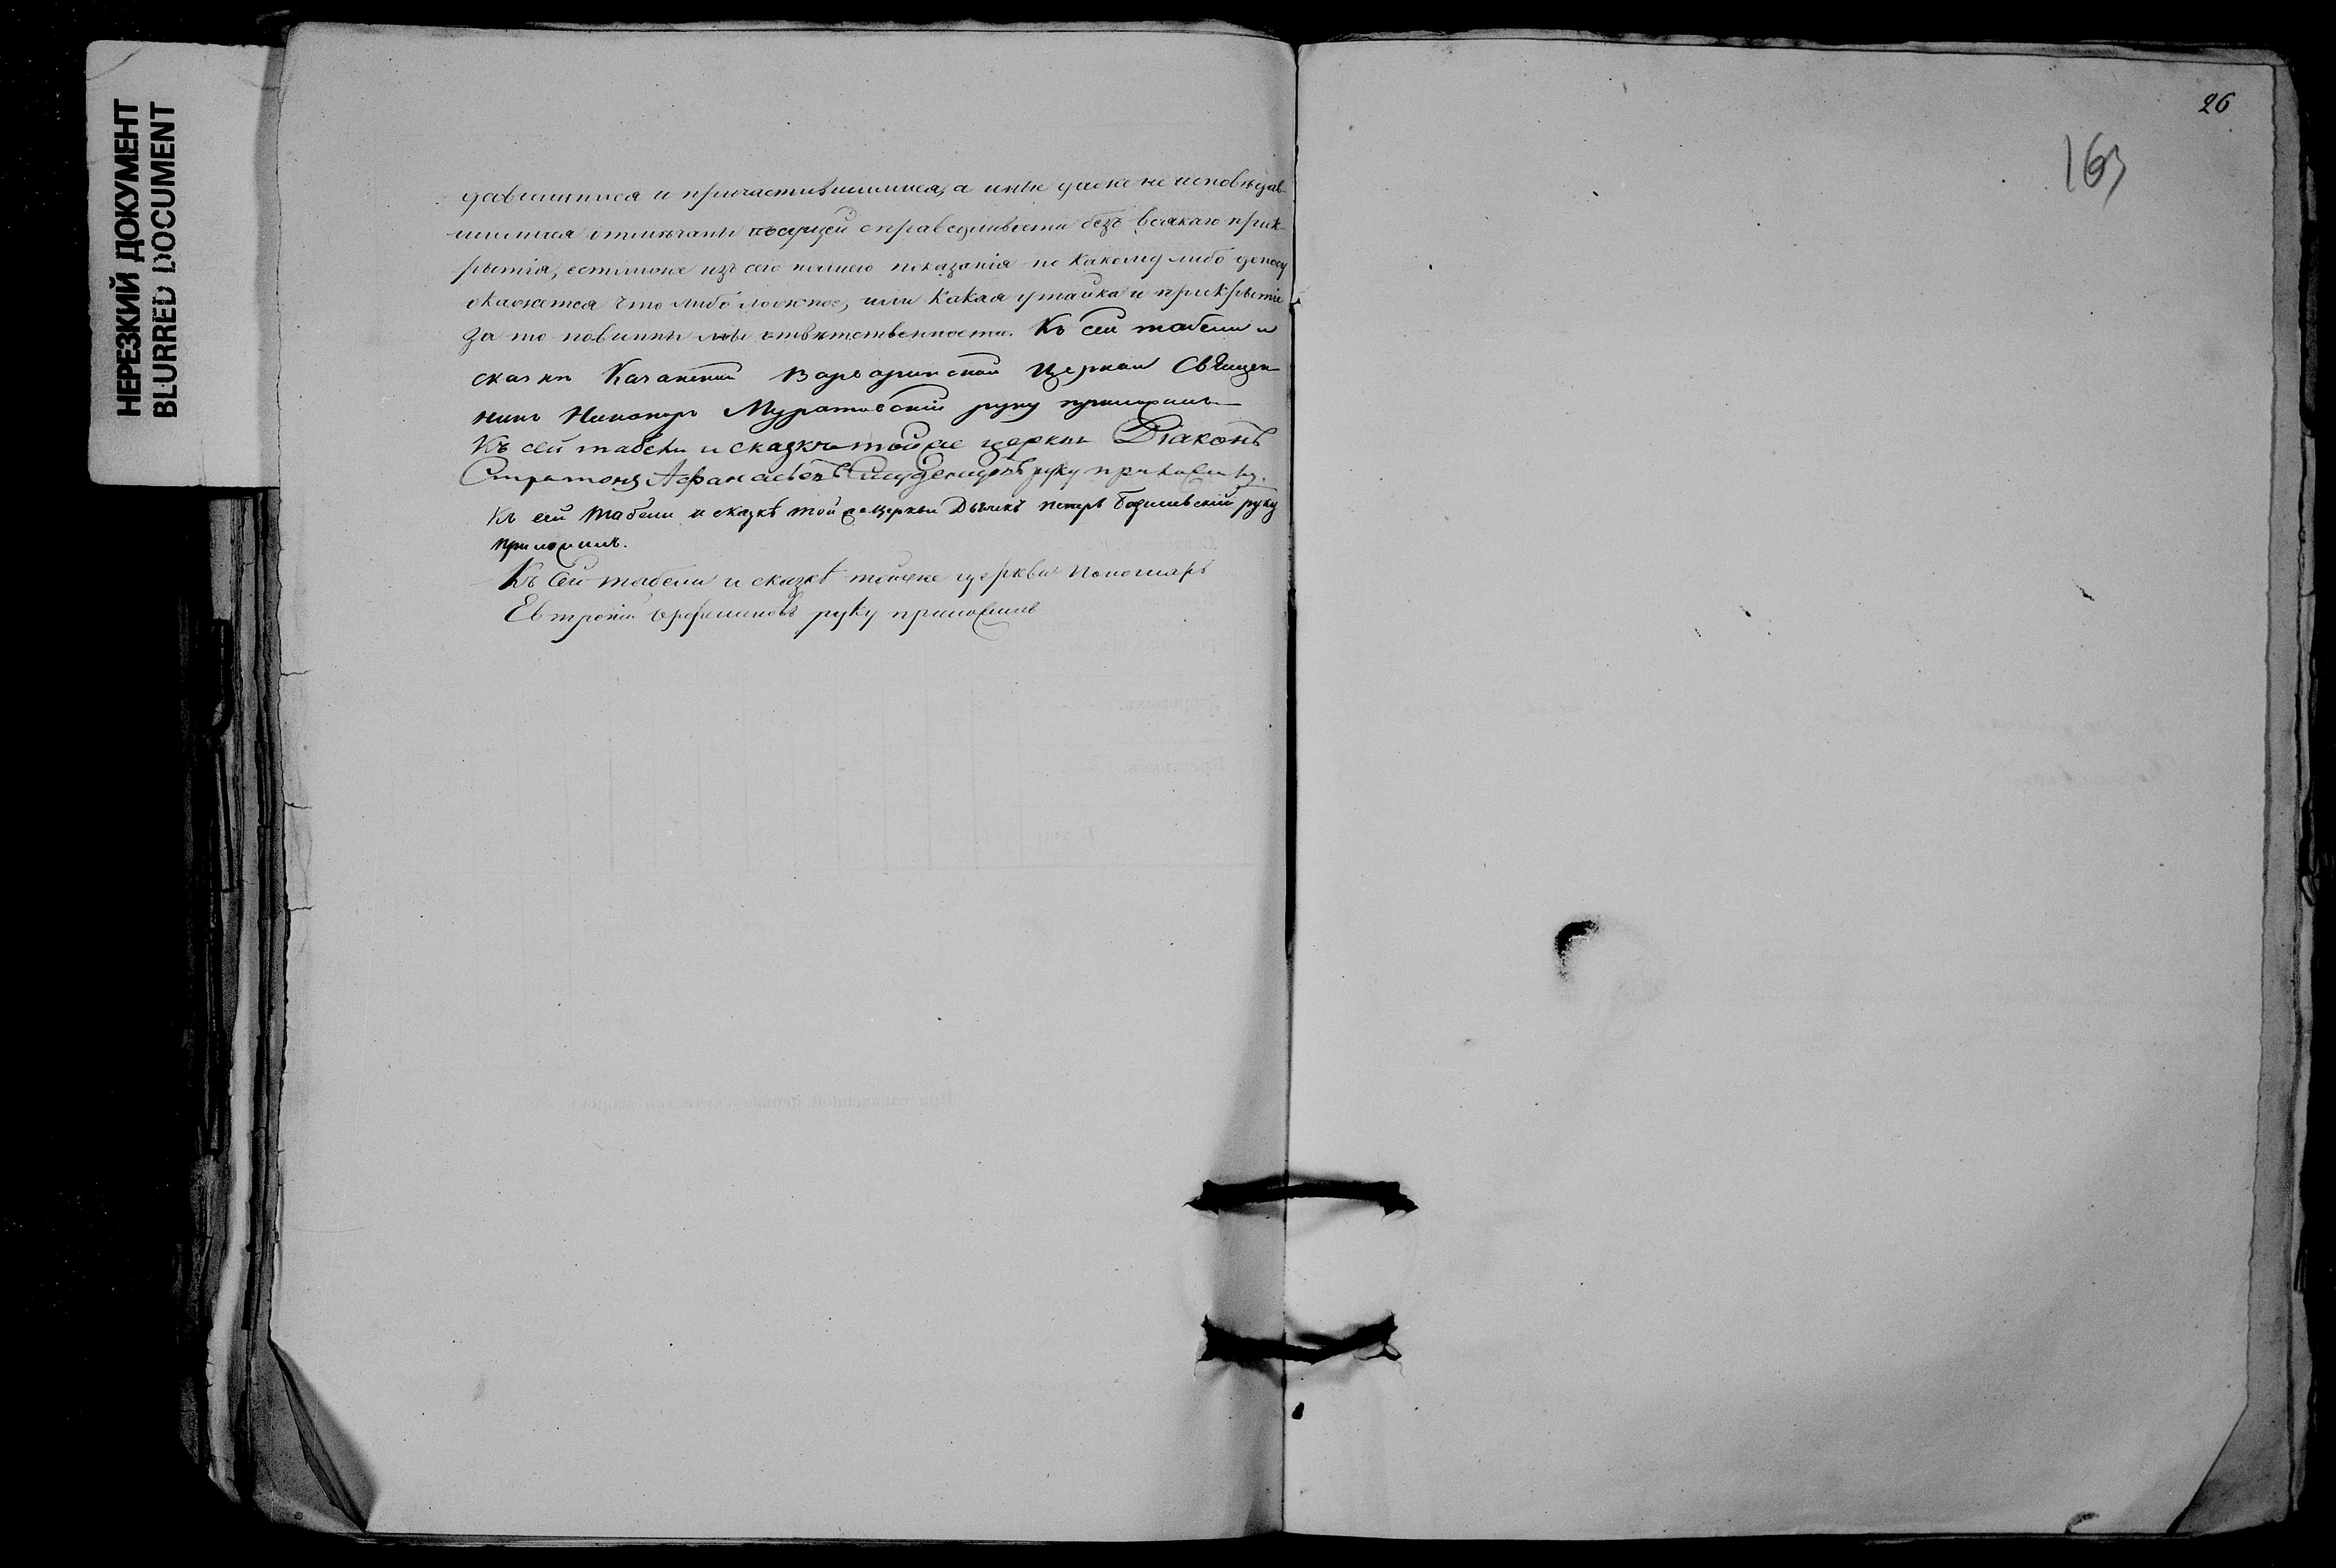 НЕРЕЗКИЙ ДОКУМЕНТ
BLURRED DOCUMENT
26
163
давшимися и причастившимися, а иные даже не исповѣдав-
шимися отмѣчаны по сущей справедливости безъ всякаго прик-
рытія, естьлиже изъ сего нашего показанія по какому либо доносу
окажется что либо ложное, или какая утайка и прикрытіе
за то повинны мы отвѣтственности. Къ сей табели и
сказки Казанской Варваринской Церкви Священ-
никъ Никаноръ Муратовскій руку приложилъ
Къ сей табели и сказкѣ тойже церкви Діаконъ
Стратонъ Афанасьевъ руку приложилъ.
Къ сей табели и сказкѣ той же церкви Дьячекъ Петръ руку
приложилъ.
Къ сей табели и сказкѣ тойже церкви Пономарь
Евтропій руку приложилъ